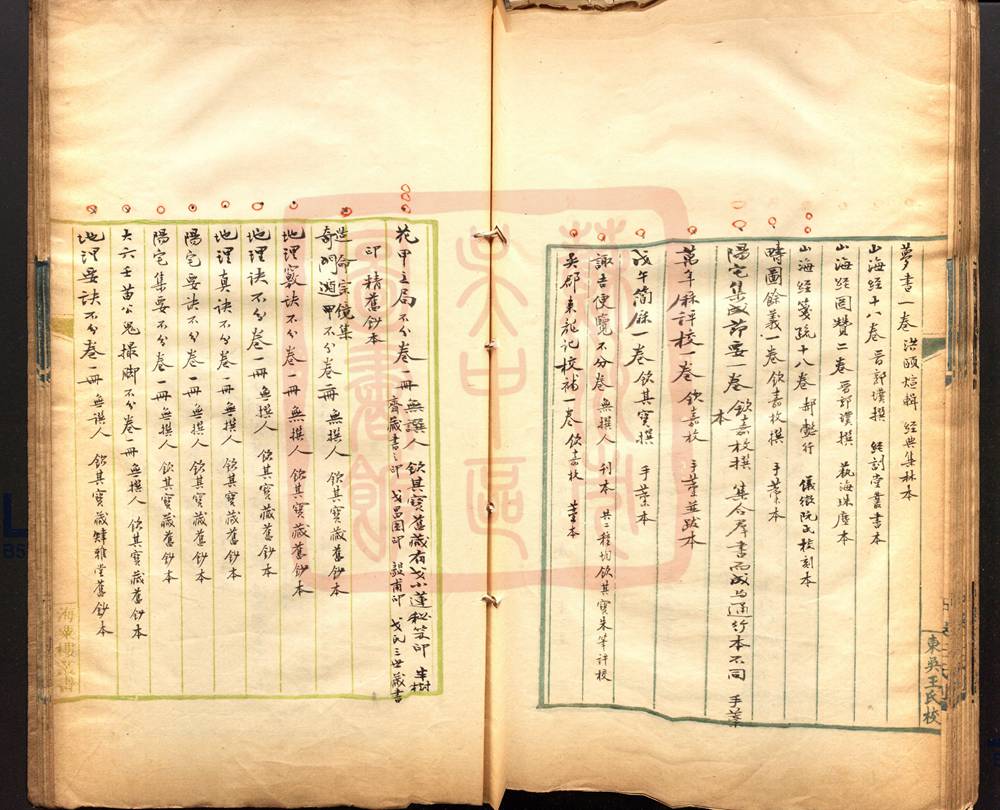 夢書一卷 洪頤煊輯 經典集林本
山海經十八卷 晉郭璞撰 經訓堂叢書本
山海經圖贊二卷 晉郭璞撰 藝海珠塵本
山海經箋疏十八卷 郝懿行 儀徵阮氏校刻本
疇圖餘義一卷 欽嘉枚撰 手藁本
陽宅集成節要一卷 欽嘉枚撰 集合群書而成与通行本不同 手藁
本
萬年厤評校一卷 欽嘉枚 手藁並跋本
戊午簡厤一卷 欽其寶撰 手藁本
諏吉便覽不分卷 無撰人 刊本 共二種均欽其寶朱筆評校
吳郡東龍記校補一卷 欽嘉枚 藁本
東吳王氏校
花甲立局不分卷一冊 無譔人 欽其寶舊藏有戈小蓮秘笈印 半樹
齋藏書之印 戈昌國印 毅甫印 戈氏三世藏書
印 精舊鈔本
造命宗鏡集
奇門遁甲不分卷一冊 無撰人 欽其寶藏舊鈔本
地理竅訣不分卷一冊 無撰人 欽其寶藏舊鈔本
地理訣不分卷一冊 無撰人 欽其寶藏舊鈔本
地理真訣不分卷一冊 無撰人 欽其寶藏舊鈔本
陽宅要訣不分卷一冊 無撰人 欽其寶藏舊鈔本
陽宅集要不分卷一冊 無撰人 欽其寶藏舊鈔本
大六壬苗公鬼撮脚不分卷一冊 無撰人 欽其寶藏舊鈔本
地理要訣不分卷一冊 無譔人 欽其寶藏雅堂舊鈔本